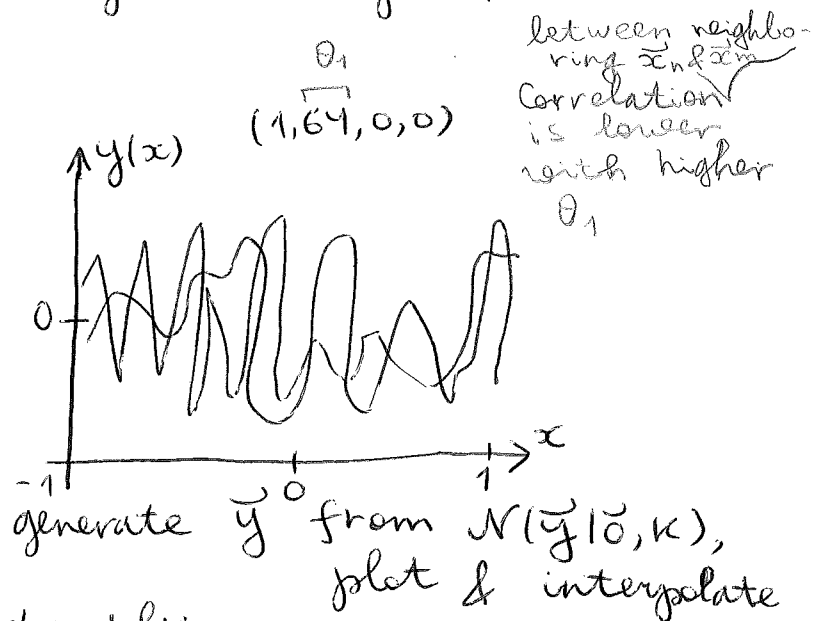 between neighbo-
ring x⃗n & x⃗m
Correlation
is lower
with higher
θ1
θ1
(1,64,0,0)
y(x)
0
x
-1
0
1
generate y⃗ from N(y⃗|0⃗,K),
plot & interpolate